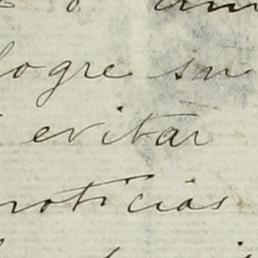 logre su
evitar
noticias